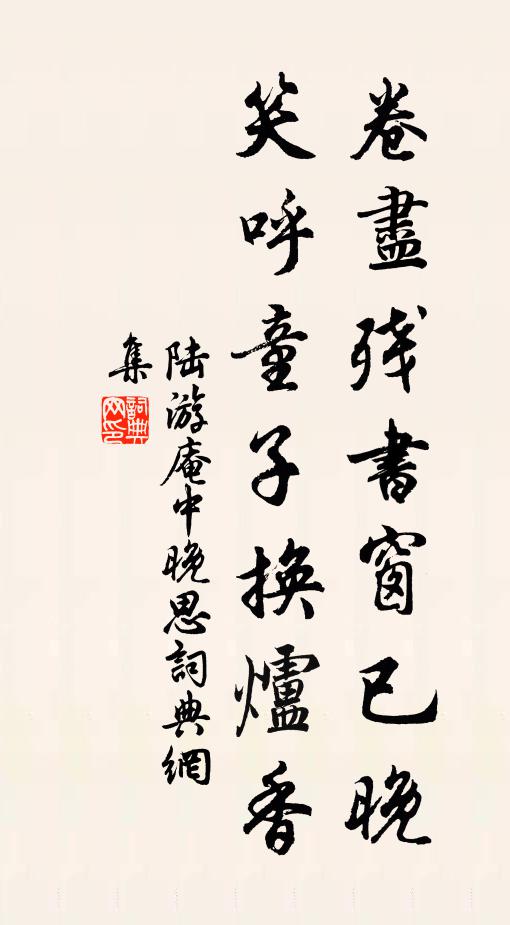 卷盡残書窗已晚
笑呼童子換爐香
陆游庵中晚思詞典網
集
詞典网印